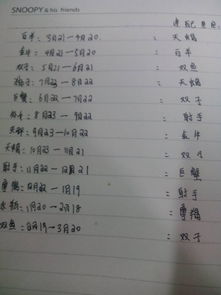 SNOOPY & his friends
速配星座
白羊：3月21~4月20 ： 天蝎
金牛：4月21~5月20 ： 白羊
双子：5月21~6月21 ： 双鱼
狮子：7月22~8月22 ： 天蝎
巨蟹：6月22~7月22 ： 双子
8月23~9月22 ： 射手
天秤：9月23~10月22 ： 金牛
天蝎：10月23~11月21 ： 双子
射手：11月22~12月21 ： 巨蟹
摩羯：12月22~1月19 ： 射手
水瓶：1月20~2月18 ： 摩羯
双鱼：2月19~3月20 ： 双子